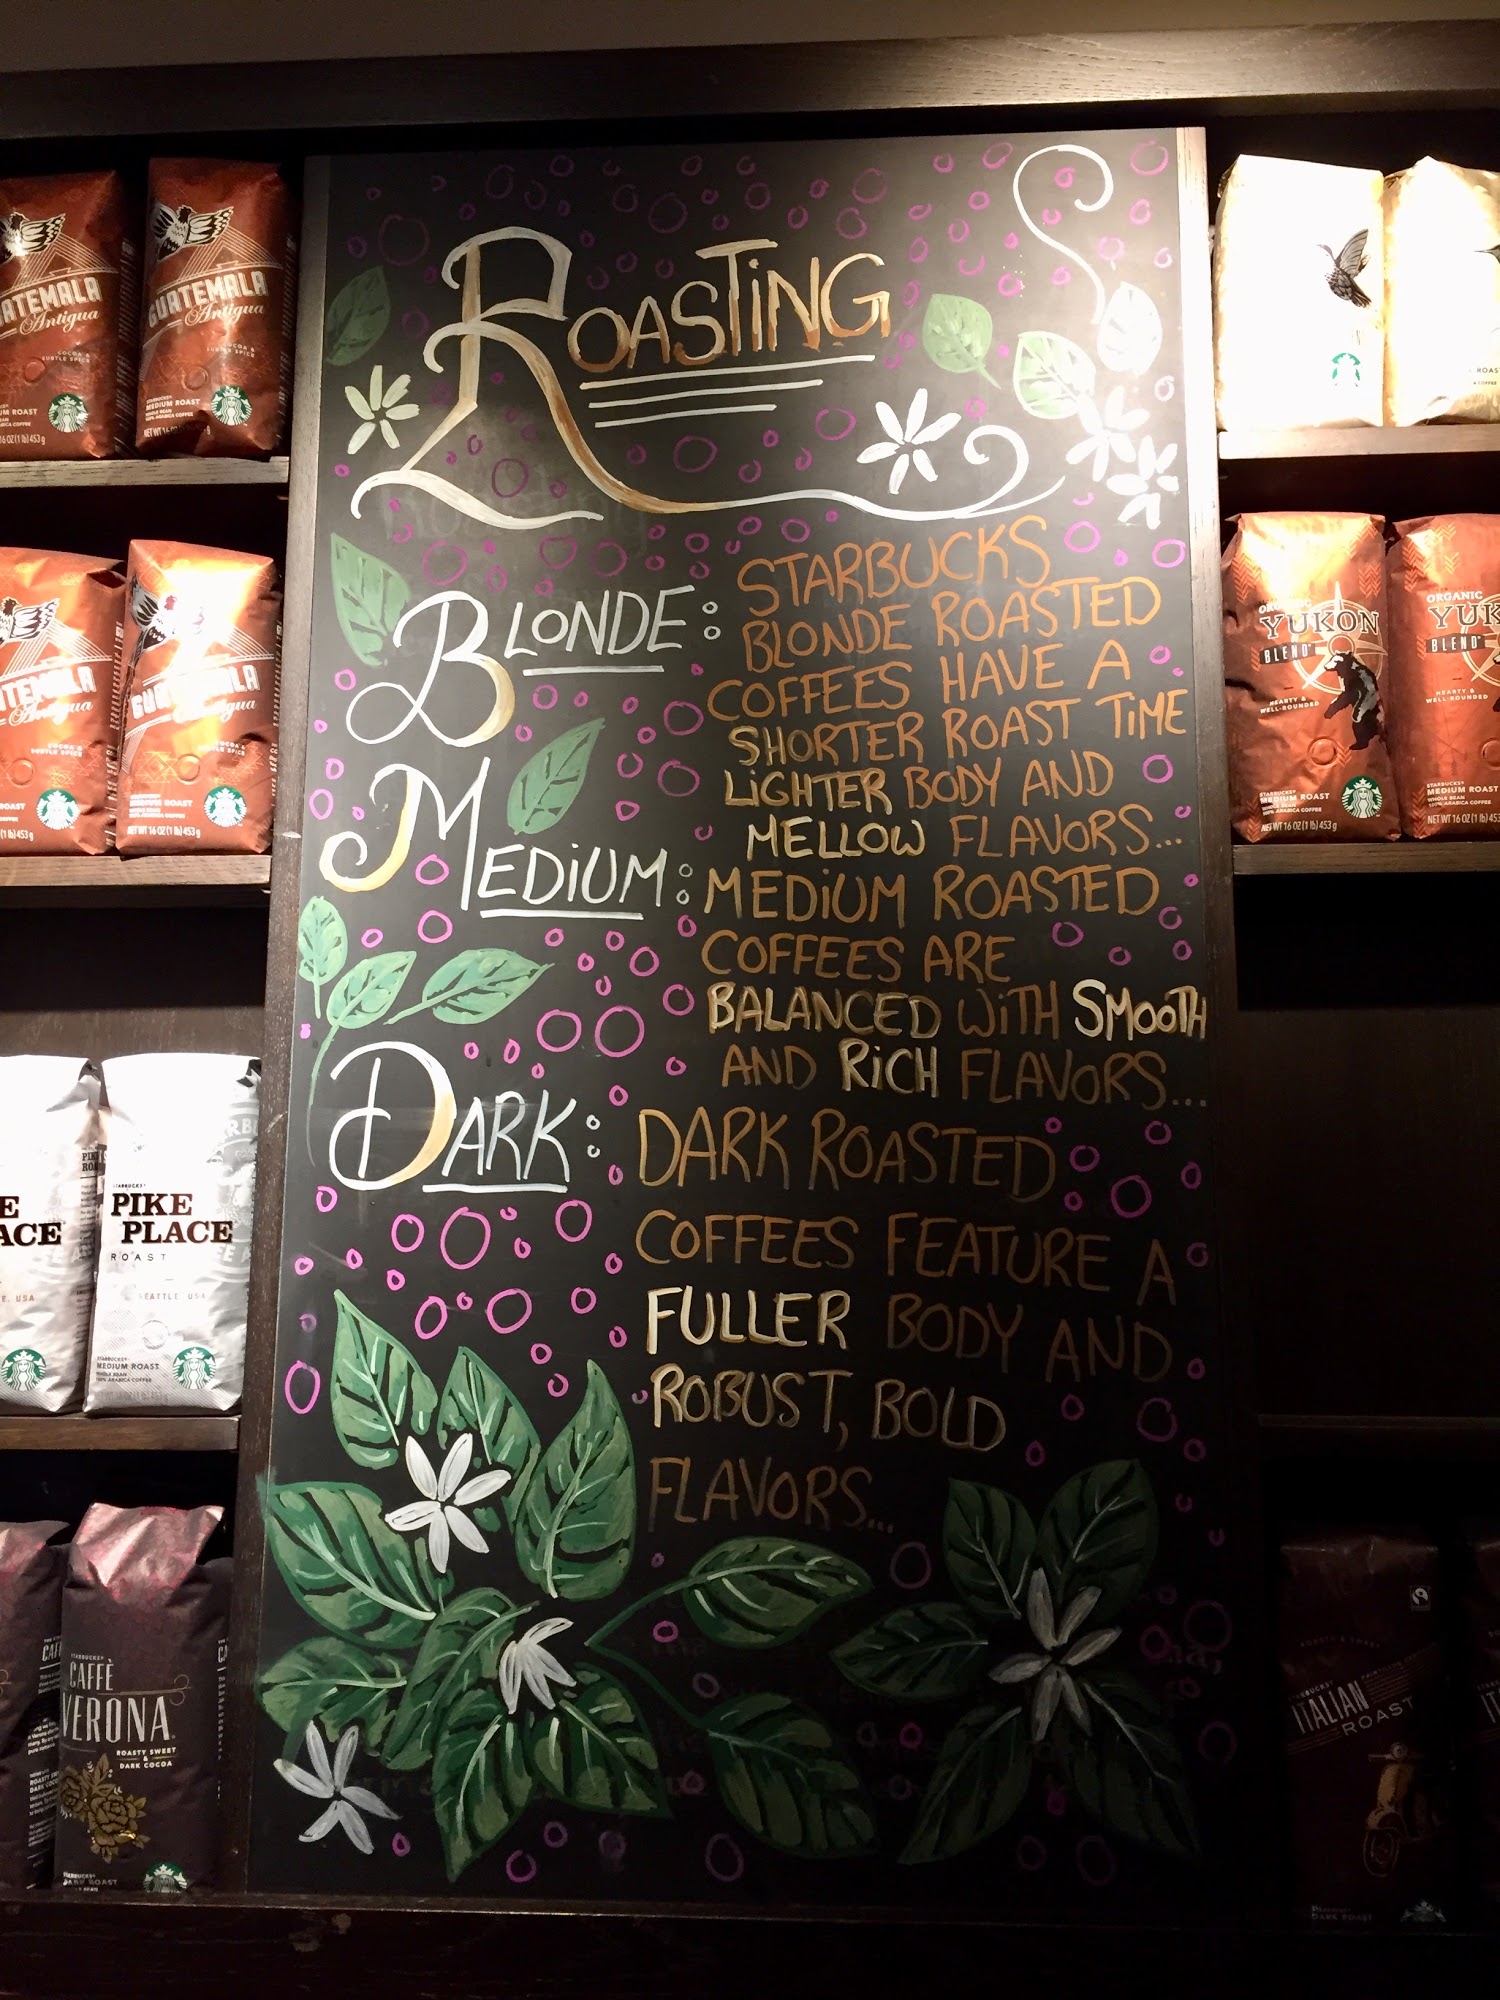 ROASTING
BLONDE:
STARBUCKS
BLONDE ROASTED
COFFEES HAVE A
SHORTER ROAST TIME
LIGHTER BODY AND
MELLOW FLAVORS...
MEDIUM:
MEDIUM ROASTED
COFFEES ARE
BALANCED WITH SMOOTH
AND RICH FLAVORS...
DARK:
DARK ROASTED
COFFEES FEATURE A
FULLER BODY AND
ROBUST, BOLD
FLAVORS...
GUATEMALA
Antigua
COCOA &
SUBTLE SPICE
MEDIUM ROAST
WHOLE BEAN
100% ARABICA COFFEE
NET WT 16 OZ (1 lb) 453 g
GUATEMALA
Antigua
COCOA &
SUBTLE SPICE
MEDIUM ROAST
NET WT 16 OZ (1 lb) 453 g
STARBUCKS®
PIKE
PLACE
ROAST
SEATTLE, USA
STARBUCKS®
MEDIUM ROAST
WHOLE BEAN
100% ARABICA COFFEE
STARBUCKS®
CAFFÈ
VERONA
ROASTY SWEET
&
DARK COCOA
STARBUCKS®
DARK ROAST
ORGANIC
YUKON
BLEND
HEARTY &
WELL-ROUNDED
STARBUCKS®
MEDIUM ROAST
WHOLE BEAN
100% ARABICA COFFEE
NET WT 16 OZ (1 lb) 453 g
ORGANIC
YUK
BLEND
HEARTY &
WELL-ROUNDED
STARBUCKS®
MEDIUM ROAST
ROASTY & SWEET
STARBUCKS®
ITALIAN
ROAST
DARK ROAST